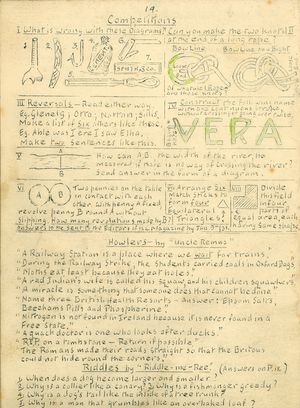 14.
Competitions
I What is wrong with these diagrams?
Can you make the two knots II
at the end of a long rope?
Bow Line
Bow Line on Bight
III Reversals – Read either way.
Eg. Glenelg; Otto; Narran; Sillis
Make a list of six others like these.
Eg. Able was I ere I saw Elba,
Make two sentences like this.
IV Construct the full-size name
VERA
V
A
B
How can AB, the width of the river, be
measured if there is no way of crossing the river?
Send answer in the form of a diagram.
VI
Two pennies on the table
in contact with each
other. With penny A fixed
revolve penny B round A without
slipping. How many revolutions made by B?
VII Arrange six
match sticks to
form four
equilateral
VIII Divide
this field
in four
parts of
equal area each
having same shape
Answers to be sent to the Editors
Howlers – by "Uncle Remus"
"A Railway Station is a place where we wait for trains."
"During the Railway Strike, the students carried loads in Oxford Bags"
"Moths eat least because they eat holes."
"A red Indian's wife is called his squaw, and his children squawkers"
"A miracle is something that someone does that cannot be done"
"Name three British Health Resorts – Answer: Epsom Salts,
Beechams Pills and Phospherine."
"Nitrogen is not found in Ireland because it is never found in a
Free State."
"A quack doctor is one who looks after ducks."
"R.I.P. on a tombstone – Return if possible"
"The Romans made their roads straight so that the Britons
could not hide round the corners."
Riddles by "Riddle-me-Ree"
(Answers on P.
1 When does a dog become larger and smaller?
2 Why is a collier like a canary?
3 Why is a fishmonger greedy?
4 Why is a dog's tail like the inside of a tree trunk?
5 Why is a man that grumbles like an overbaked loaf?